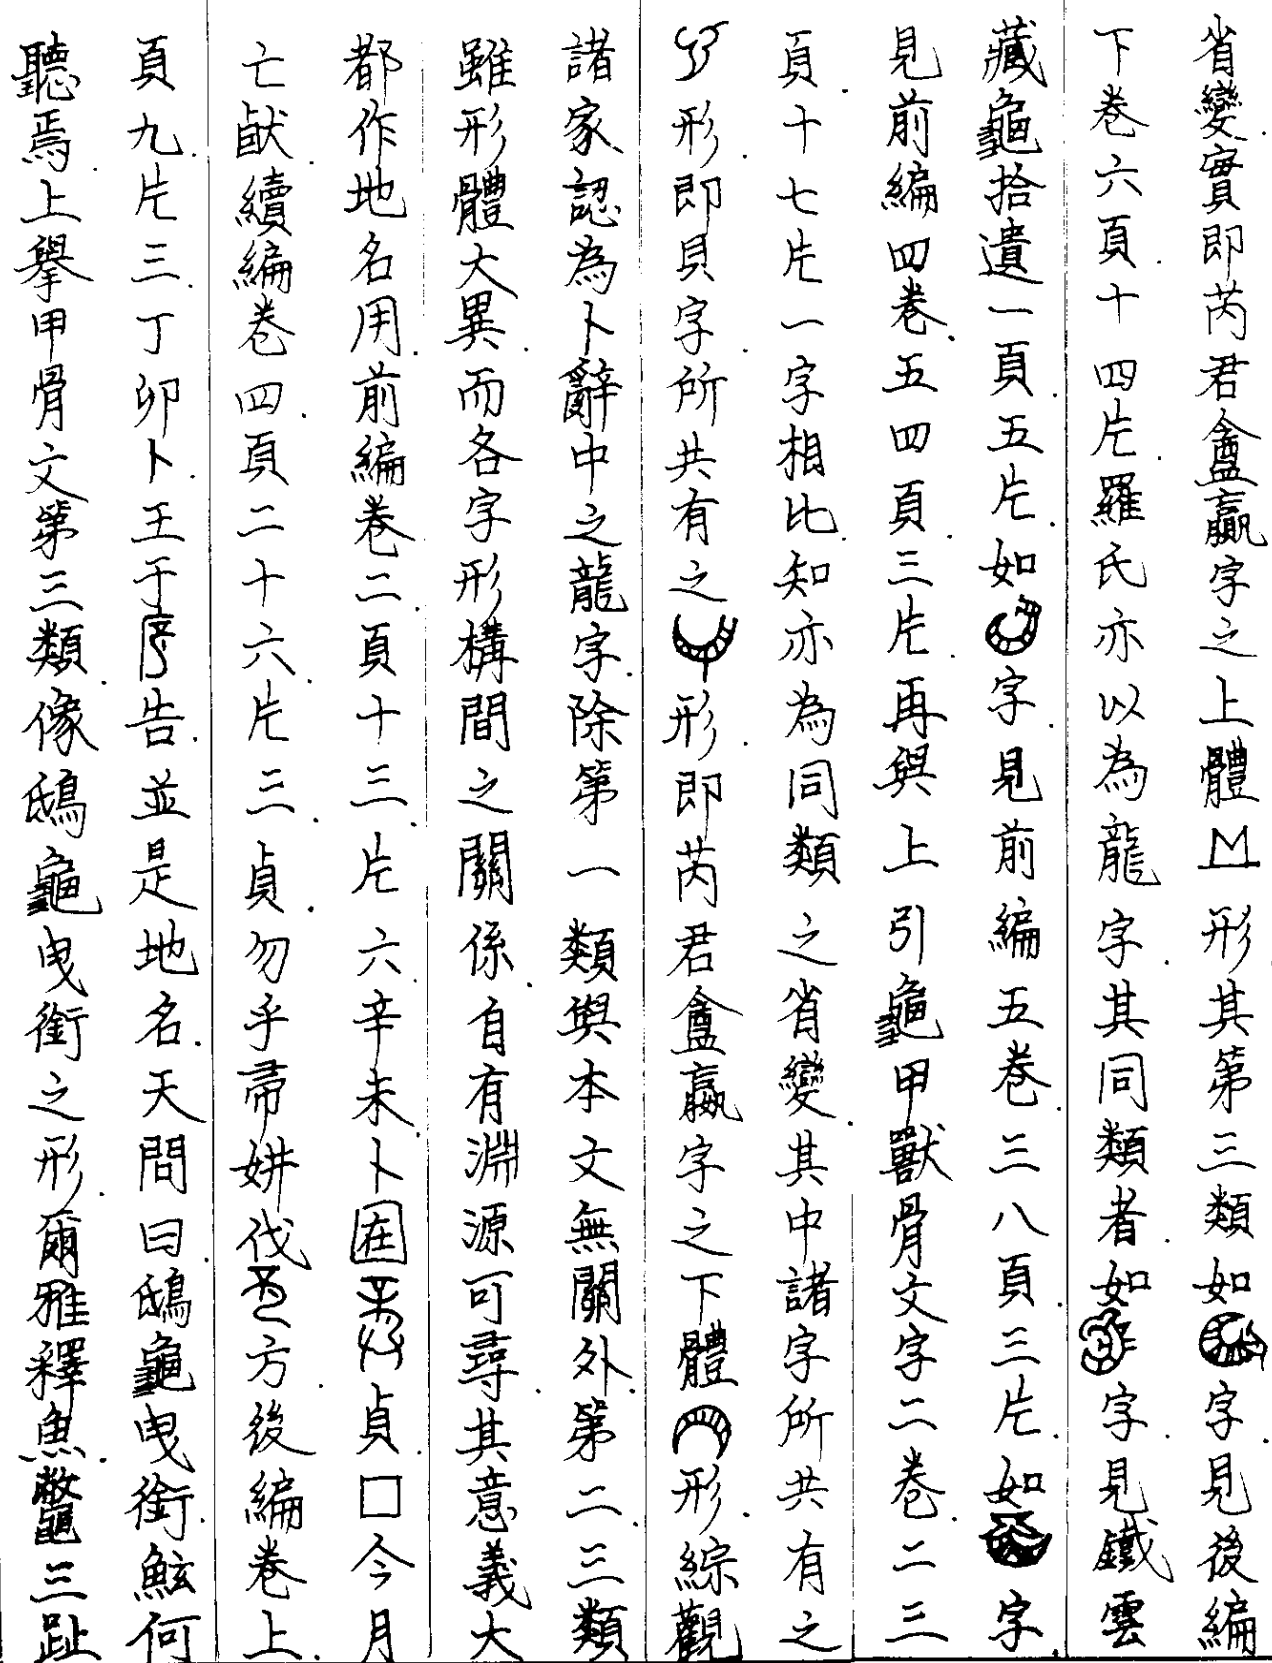 省變實即芮君盦贏字之上體形其第三類如字見後編
下卷六頁.十四片.羅氏亦以為龍字.其同類者.如字見鐵雲
藏龜拾遺一頁五片.如字.見前編五卷.三八頁.三片.如字.
見前編四卷.五四頁三片.再與上引龜甲獸骨文字二卷二三
頁.十七片一字相比.知亦為同類之省變.其中諸字所共有之
形.即貝字.所共有之形.即芮君盦嬴字之下體形.綜觀
諸家認為卜辭中之龍字.除第一類與本文無關外.第二三類
雖形體大異.而各字形構間之關係.自有淵源可尋.其意義大
都作地名用.前編卷二.頁十三.片六.辛未卜在貞□今月
亡䣭.續編卷四.頁二十六.片三.貞.勿乎帚妌伐方.後編卷上.
頁九.片三.丁卯卜.王于告.並是地名.天問曰.鴟龜曳銜.鮌何
聽焉.上舉甲骨文第三類.像鴟龜曳銜之形.爾雅釋魚.鼈三趾